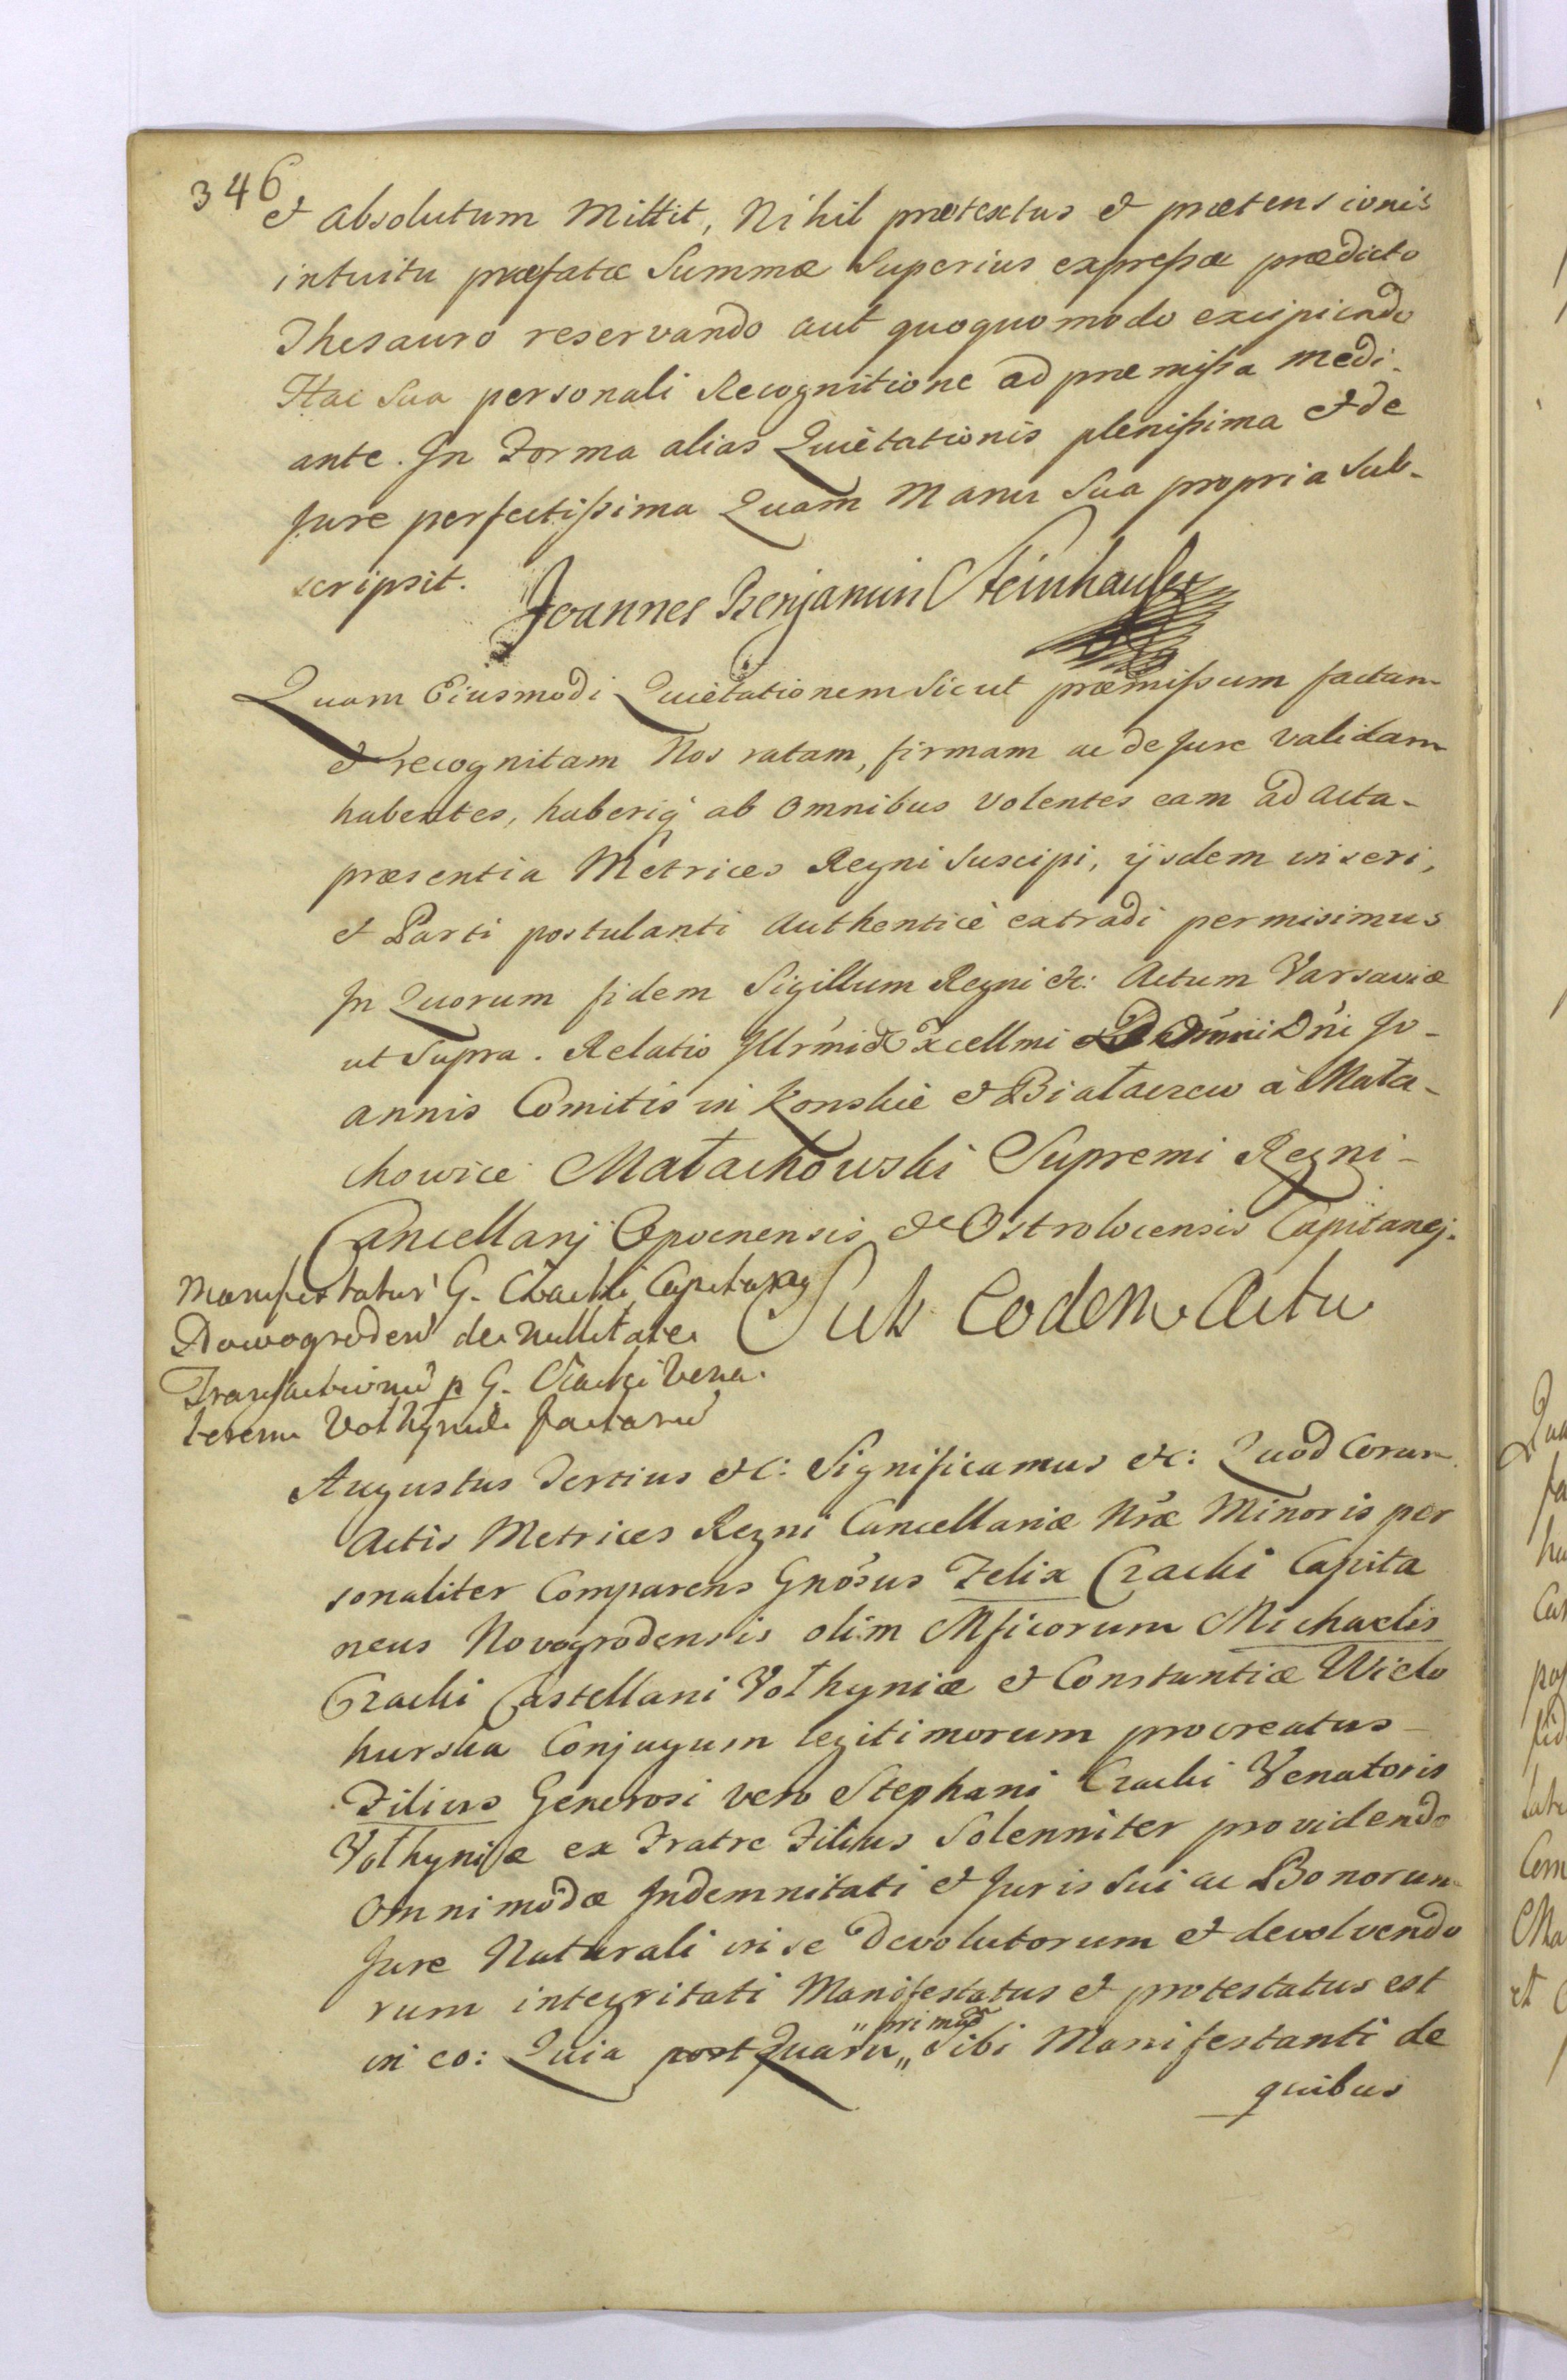 346
et absolutum Mittit, Nihil prætextus et prætensionis
intuitu præfatæ Summæ Superius expreßæ prædicto
Thesauro reservando aut quoquomodo excipiendo
Hac Sua personali Recognitione ad præmißa medi-
ante. In Forma alias Quietationis plenißima et de
Jure perfectißima Quam Manu Sua propria Sub-
scripsit.
Joannes Benjamin Steinhauser
Quam Eiusmodi Quiètationem Sicut præmißum factam
et recognitam Nos ratam, firmam ac de Jure Validam
habentes, haberiq ab Omnibus Volentes eam ad Acta-
præsentia Metrices Regni Suscipi, ijsdem inseri,
et Parti postulanti Authenticè extradi permisimus
In Quorum fidem Sigillum Regni etc: Actum Varsaviæ
ut Supra. Relatio Illrmi et Excellmi Dni Jo-
annis Comitis in Konskie et Białaczew à Mała-
chowice Małachowski Supremi Regni-
Cancellarij Opocnensis et Ostrolocensis Capitanej.
Manifestatur G. Czacki Capitaney
Nowogroden de nullitate
Transactionu p G. Czacki Vena-
torem Vołhyniæ factaru
Sub Eodem Actu
Augustus Tertius etc: Significamus etc: Quod Coram
Actis Metrices Regni Cancellariæ Nræ Minoris per
sonaliter Comparens Gnosus Felix Czacki Capita
neus Novogrodensis olim Mficorum Michaelis
Czacki Castellani Vołhyniæ et Constantiæ Wielo
hurska Conjugum legitimorum procreatus
Filius Generosi vero Stephani Czacki Venatoris
Vołhyniæ ex Fratre Filius Solenniter providendo
Omnimodæ Indemnitati et Juris Sui ac Bonorum
Jure Naturali in se Devolutorum et devolvendo
rum integritati Manifestatus et protestatus est
in eo: Quia postquam „ primo „ Sibi Manifestanti de
quibus